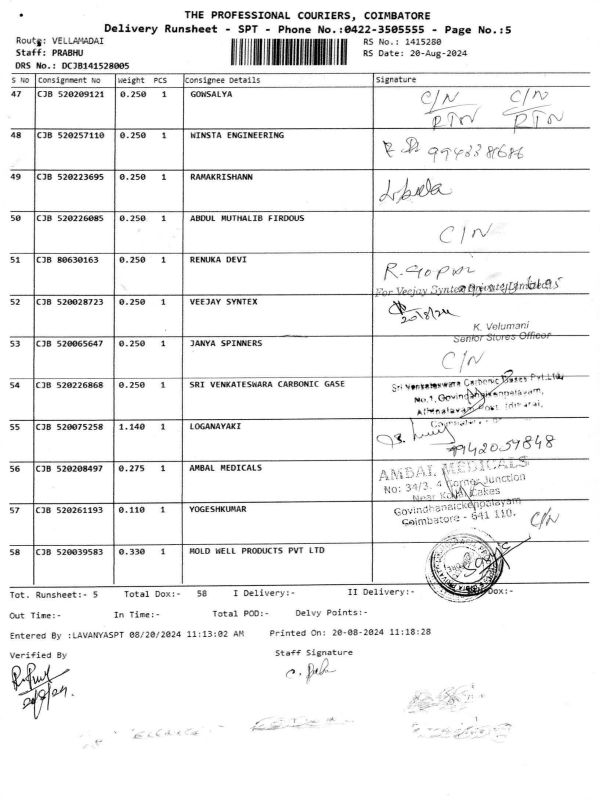 THE PROFESSIONAL COURIERS, COIMBATORE
Delivery Runsheet - SPT - Phone No.:0422-3505555 - Page No.:5
Route: VELLAMADAI
RS No.: 1415280
Staff: PRABHU
RS Date: 20-Aug-2024
DRS No.: DCJB141528005
S No Consignment No Weight PCS Consignee Details Signature
47 CJB 520209121 0.250 1 GOWSALYA C/N RTN C/N RTN
48 CJB 520257110 0.250 1 WINSTA ENGINEERING
49 CJB 520223695 0.250 1 RAMAKRISHANN
50 CJB 520226085 0.250 1 ABDUL MUTHALIB FIRDOUS C/N
51 CJB 80630163 0.250 1 RENUKA DEVI R. Gopal
For Veejay Syntex Private Limited
52 CJB 520028723 0.250 1 VEEJAY SYNTEX 20/8/24
K. Velumani
Senior Stores Officer
53 CJB 520065647 0.250 1 JANYA SPINNERS C/N
54 CJB 520226868 0.250 1 SRI VENKATESWARA CARBONIC GASE Sri Venkateswara Carbonic Gases Pvt.Ltd.,
No.1, Govindanaickenpalayam,
Athipalayam Post, Idikarai,
Coimbatore
55 CJB 520075258 1.140 1 LOGANAYAKI 9942059848
56 CJB 520208497 0.275 1 AMBAL MEDICALS AMBAL MEDICALS
No: 34/3, 4 Corner Junction
Near Cakes
57 CJB 520261193 0.110 1 YOGESHKUMAR Govindhanaickenpalayam
Coimbatore - 641 110. C/N
58 CJB 520039583 0.330 1 MOLD WELL PRODUCTS PVT LTD
Tot. Runsheet:- 5 Total Dox:- 58 I Delivery:- II Delivery:- Dox:-
Out Time:- In Time:- Total POD:- Delvy Points:-
Entered By :LAVANYASPT 08/20/2024 11:13:02 AM Printed On: 20-08-2024 11:18:28
Verified By Staff Signature